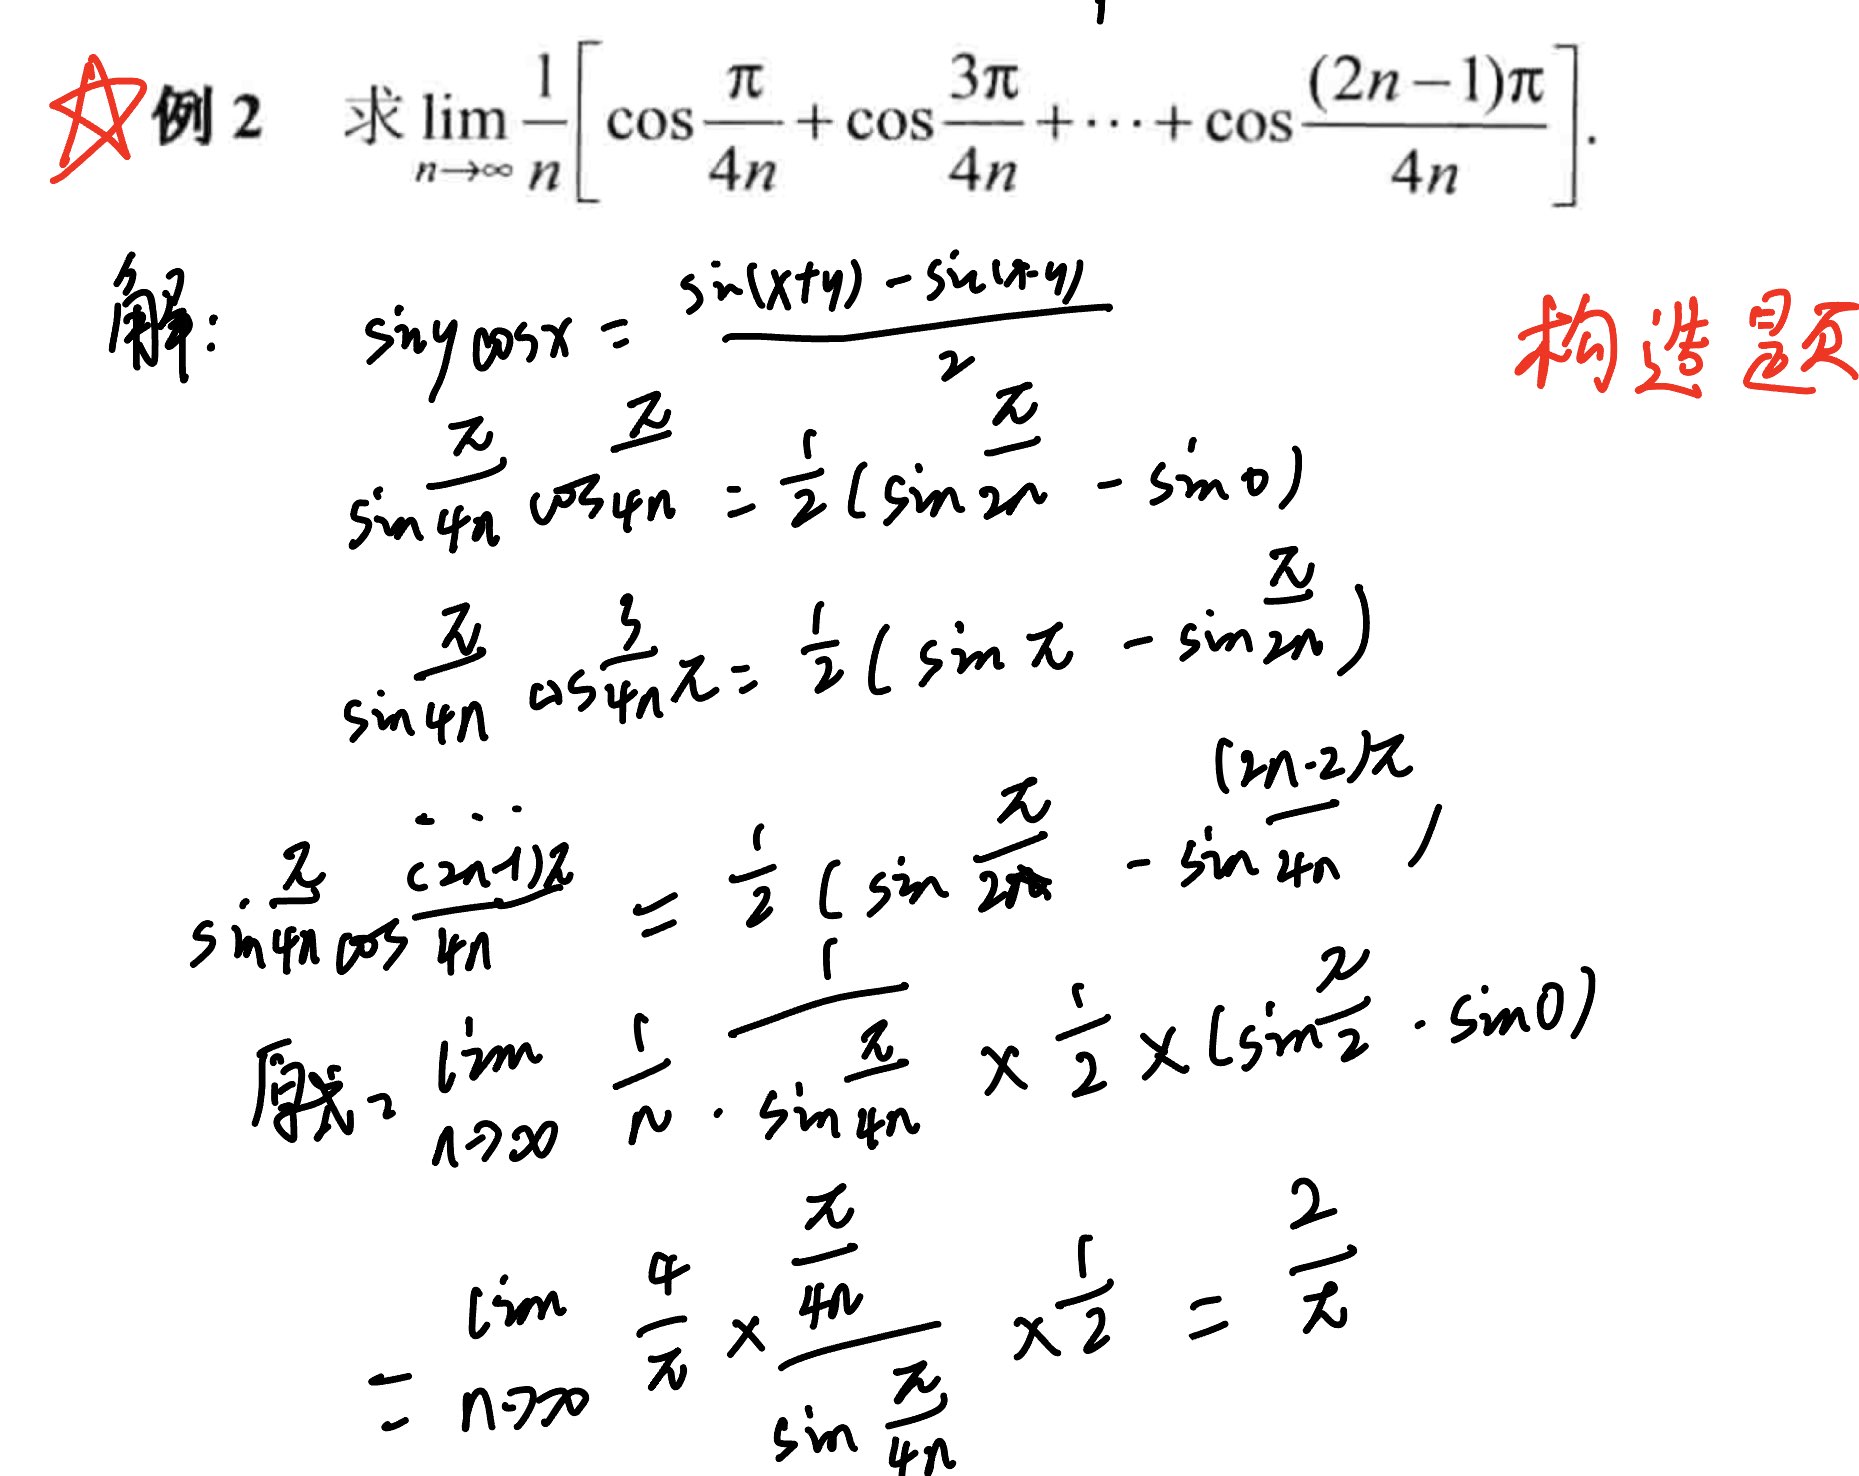 例 2 求 lim_{n→∞} \frac{1}{n}[cos\frac{π}{4n} + cos\frac{3π}{4n} + ⋯ + cos\frac{(2n-1)π}{4n}].
解: siny cosx = \frac{sin(x+y) - sin(x-y)}{2}
构造题
sin\frac{π}{4n} cos\frac{π}{4n} = \frac{1}{2}(sin\frac{π}{2n} - sin0)
sin\frac{π}{4n} cos\frac{3}{4n}π = \frac{1}{2}(sinπ - sin\frac{π}{2n})
...
sin\frac{π}{4n} cos\frac{(2n-1)π}{4n} = \frac{1}{2}(sin\frac{π}{2} - sin\frac{(2n-2)π}{4n})
原式 = lim_{n→∞} \frac{1}{n} · \frac{1}{sin\frac{π}{4n}} × \frac{1}{2} × (sin\frac{π}{2} - sin0)
= lim_{n→∞} \frac{4}{π} × \frac{\frac{π}{4n}}{sin\frac{π}{4n}} × \frac{1}{2} = \frac{2}{π}